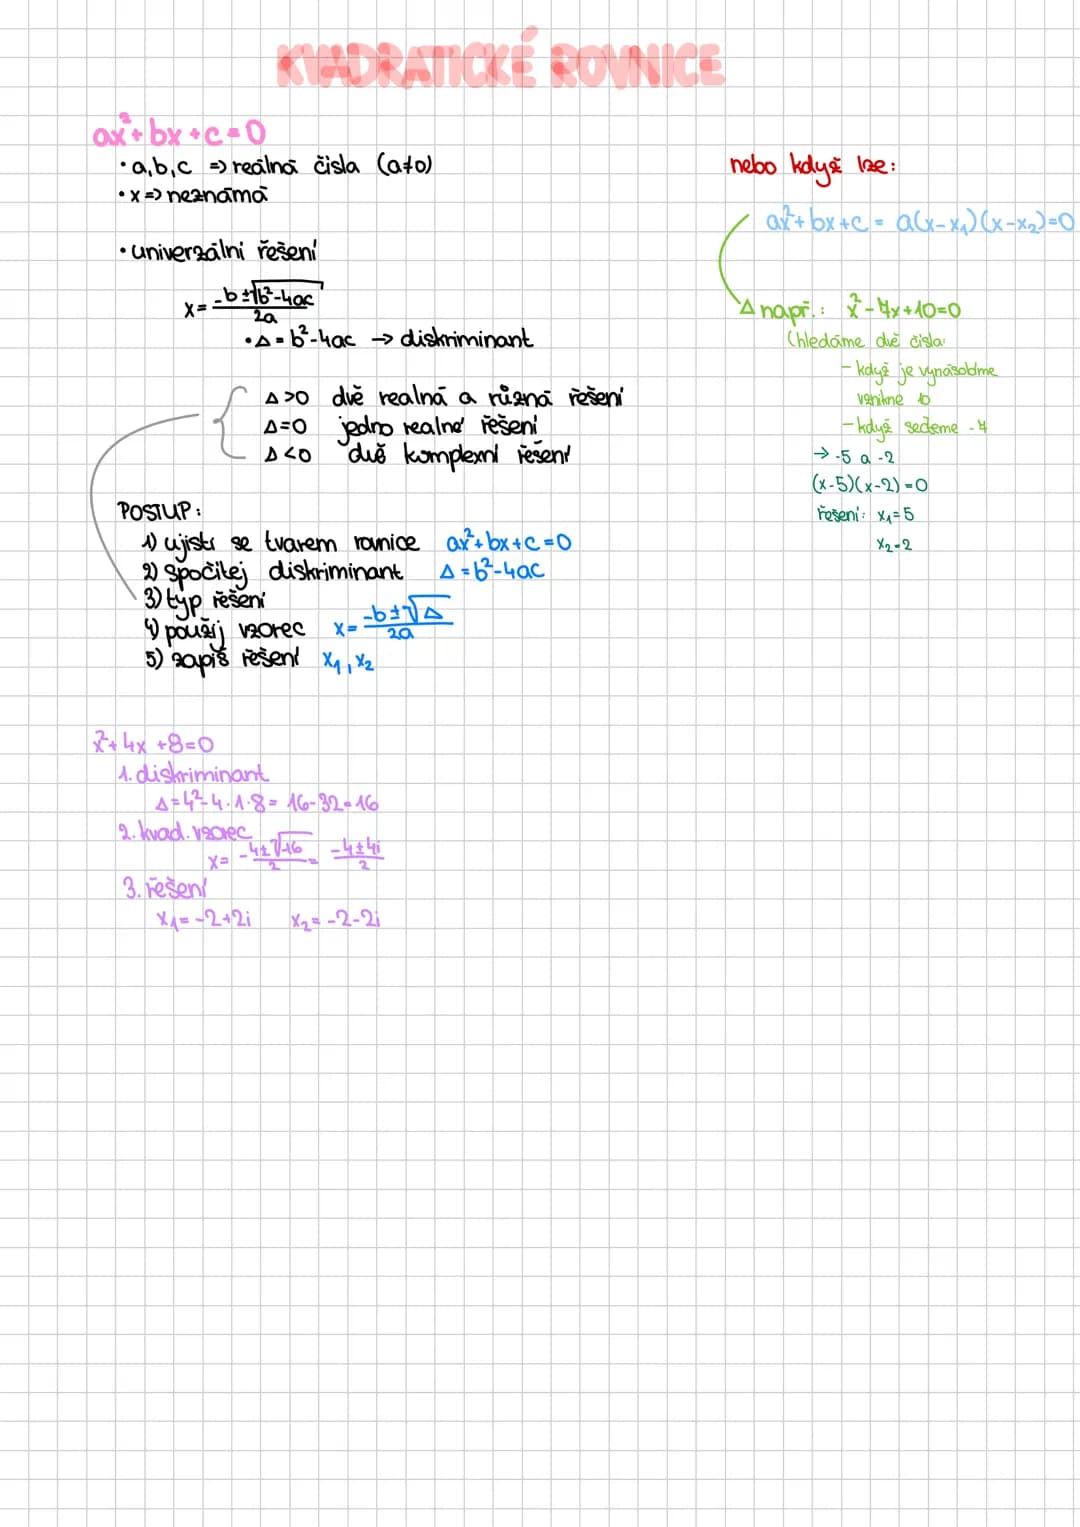 KVADRATICKÉ ROVNICE
ax²+bx+c=0
• a,b,c => reálná čísla (a≠0)
• x => neznámá
• univerzální řešení
x = -b±√b²-4ac / 2a
• Δ = b²-4ac → diskriminant
Δ>0 dvě realná a různá řešení
Δ=0 jedno realné řešení
Δ<0 dvě komplexní řešení
POSTUP:
1) ujisti se tvarem rovnice ax²+bx+c=0
2) spočítej diskriminant Δ=b²-4ac
3) typ řešení
4) použij vzorec x= -b±√Δ / 2a
5) zapiš řešení x₁, x₂
x²+4x+8=0
1. diskriminant
Δ=4²-4·1·8= 16-32=16
2. kvad. vzorec
x= -4±√-16 / 2 = -4±4i / 2
3. řešení
x₁= -2+2i x₂= -2-2i
nebo když lze:
ax²+bx+c = a(x-x₁)(x-x₂)=0
Δ např.: x²-7x+10=0
(hledáme dvě čísla:
- když je vynásobíme
vznikne 10
- když sečteme -7
→ -5 a -2
(x-5)(x-2)=0
řešení: x₁=5
x₂=2